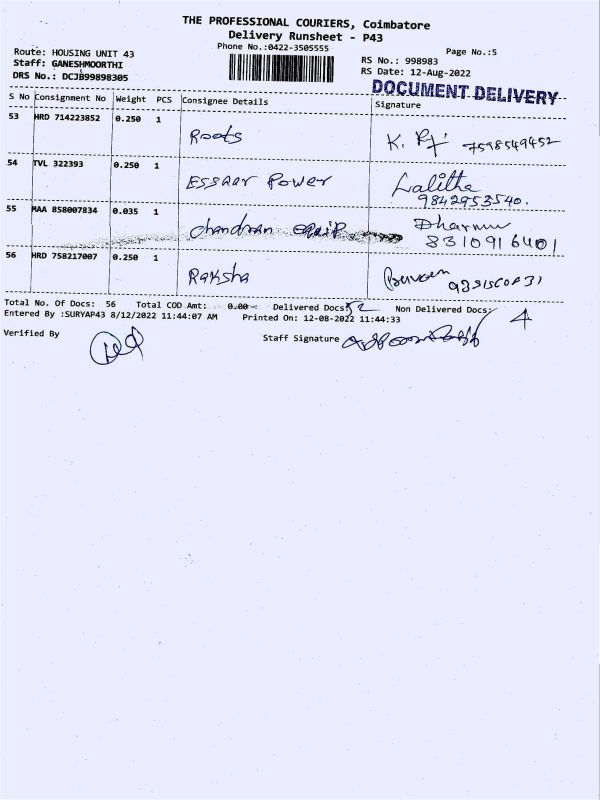 THE PROFESSIONAL COURIERS, Coimbatore
Delivery Runsheet - P43
Phone No.:0422-3505555
Page No.:5
Route: HOUSING UNIT 43
Staff: GANESHMOORTHI
DRS No.: DCJB99898305
RS No.: 998983
RS Date: 12-Aug-2022
DOCUMENT DELIVERY
S No Consignment No Weight PCS Consignee Details Signature
53 HRD 714223852 0.250 1 Roots 7598549452
54 TVL 322393 0.250 1 ESSAAR Power Lalitha 9842953540.
55 MAA 858007834 0.035 1 Chandran Equip 8310916401
56 HRD 758217007 0.250 1 Raksha
Total No. Of Docs: 56 Total COD Amt: 0.00 Delivered Docs: 52 Non Delivered Docs: 4
Entered By :SURYAP43 8/12/2022 11:44:07 AM Printed On: 12-08-2022 11:44:33
Verified By Staff Signature